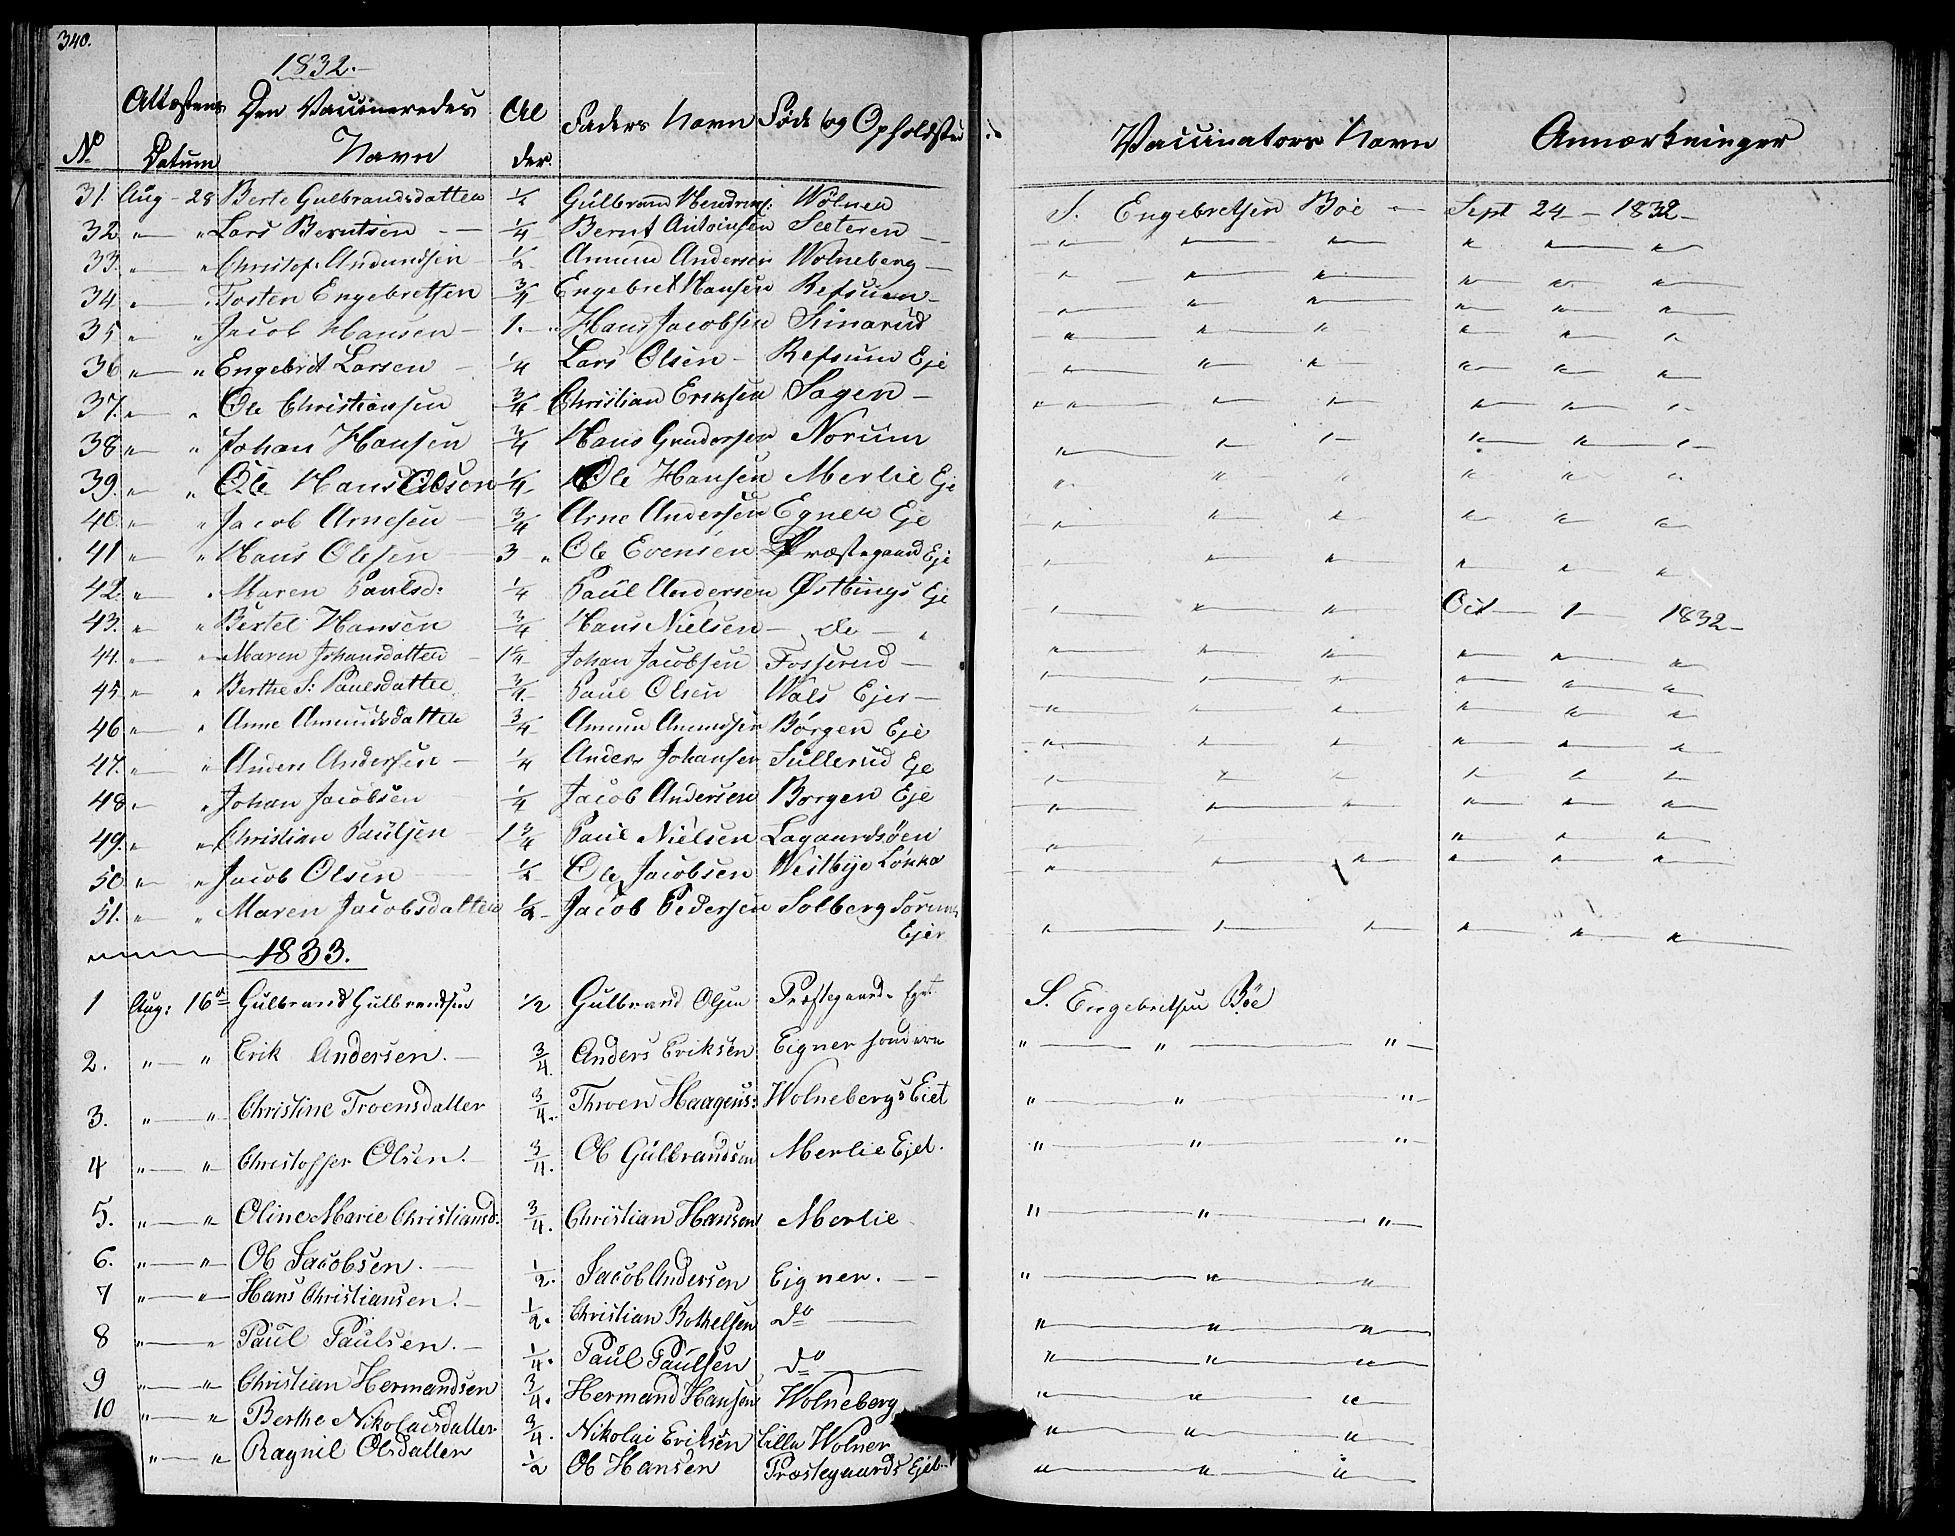 340.
1832.
No Attestens Datum Den Vaccineredes Navn Alder Faders Navn Føde og Opholdsted Vaccinators Navn Anmærkninger
31. Aug - 28 Berte Gulbrandsdatter 1/2 Gulbrand Hendrins: Wölner S. Engebretsen Boe — Sept 24 - 1832 -
32 " " Lars Berntsen 1/4 Bernt Antoinsen Seeteren " " " " " "
33. " " Christof. Amundsen 1/2 Amund Andersen Wolneberg " " " " " "
34 " " Tosten Engebretsen 3/4 Engebret Hansen Refsum " " " " " "
35 " " Jacob Hansen 1. " Hans Jacobsen Simarud " " " " " "
36 " " Engebret Larsen 1/4 Lars Olsen Refsum Eje " " " " " "
37. " " Ole Christiansen 3/4 Christian Eriksen Sagen " " " " " "
38 " " Johan Hansen 3/4 Hans Gundersen Norum " " " " " "
39. " " Ole Hans Olsen 1/4 Ole Hansen Merlie Eje " " " " " "
40. " " Jacob Arnesen 3/4 Arne Andersen Egner Eje " " " " " "
41 " " Hans Olesen 3 " Ole Evensen Præstegaard Eje " " " " " "
42. " " Maren Paulsd: 1/4 Paul Andersen Østbings Eje " " " Oct 1 1832 -
43. " " Bertel Hansen 3/4 Hans Nielsen - de - " " " " " " "
44. " " Maren Johansdatter 1 1/4 Johan Jacobsen Fosserud " " " " " "
45 " " Berthe S: Paulsdatter 3/4 Paul Olsen Wals Ejer " " " " " "
46 " " Anne Amundsdatter 3/4 Amun Amundsen Børgen Eje " " " " " "
47. " " Anders Andersen 1/4 Anders Johansen Sullerud Eje " " " " " "
48 " " Johan Jacobsen 1/4 Jacob Andersen Borgen Eje " " " " " "
49. " " Christian Paulsen 1 3/4 Paul Nielsen Lagaardsöen " " " " " "
50 " " Jacob Olsen 1/2 Ole Jacobsen Westbye Løkka " " " " " "
51. " " Maren Jacobsdatter 1/2 Jacob Pedersen Solberg Sorum Ejer " " " " " "
1833.
1 Aug: 16de Gulbrand Gulbrandsen 1/2 Gulbrand Olsen Præstegaards Eget S. Engebretsen Böe
2. " " Erik Andersen. 3/4 Anders Eriksen Eigner søndere " " "
3. " " Christine Troensdatter 3/4 Throen Haagens: Wolnebergs Eiet " " "
4 " " Christoffer Olsen. 3/4. Ole Gulbrandsen Merlie Ejet. " " "
5. " " Oline Marie Christiansd: 3/4. Christian Hansen Merlie " " "
6. " " Ole Jacobsen. 1/2. Jacob Andersen Eigner. " " "
7 " " Hans Christiansen. 1/2. Christian Bothelsen do " " "
8 " " Paul Paulsen. 1/4. Paul Paulsen do " " "
9 " " Christian Hermandsen 3/4. Hermand Hansen Wolneberg " " "
10 " " Berthe Nikolaisdatter 3/4. Nikolai Eriksen Lille Wolner " " "
" " Ragnil Olsdatter 1/2 Ole Hansen Præstegaards Ejet " " "